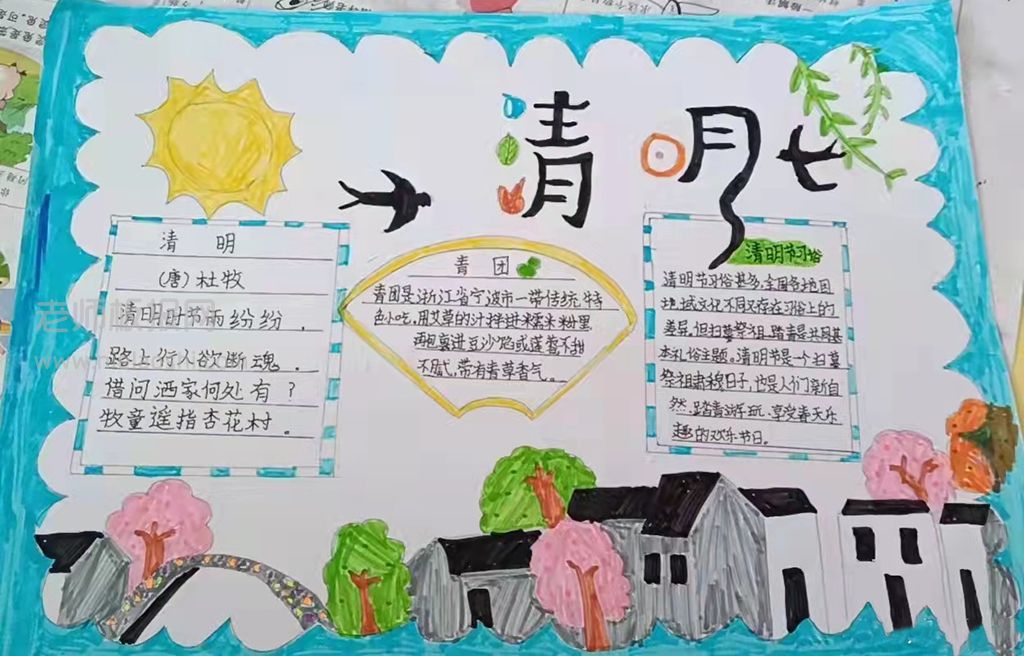 清明
清 明
(唐)杜牧
清明时节雨纷纷,
路上行人欲断魂.
惜问酒家何处有?
牧童遥指杏花村。
青团
青团是浙江省宁波市一带传统特
色小吃,用艾草的汁拌进糯米粉里
再包裹进豆沙馅或莲蓉不甜
不腻,带有青草香气。
清明节习俗
清明节习俗甚多,全国各地因
地域文化不同又存在习俗上的
差异。但扫墓祭祖、踏青是共同基
本礼俗主题。清明节是一个扫墓
祭祖肃穆日子,也是人们亲近自
然、踏青游玩、享受春天乐
趣的欢乐节日。